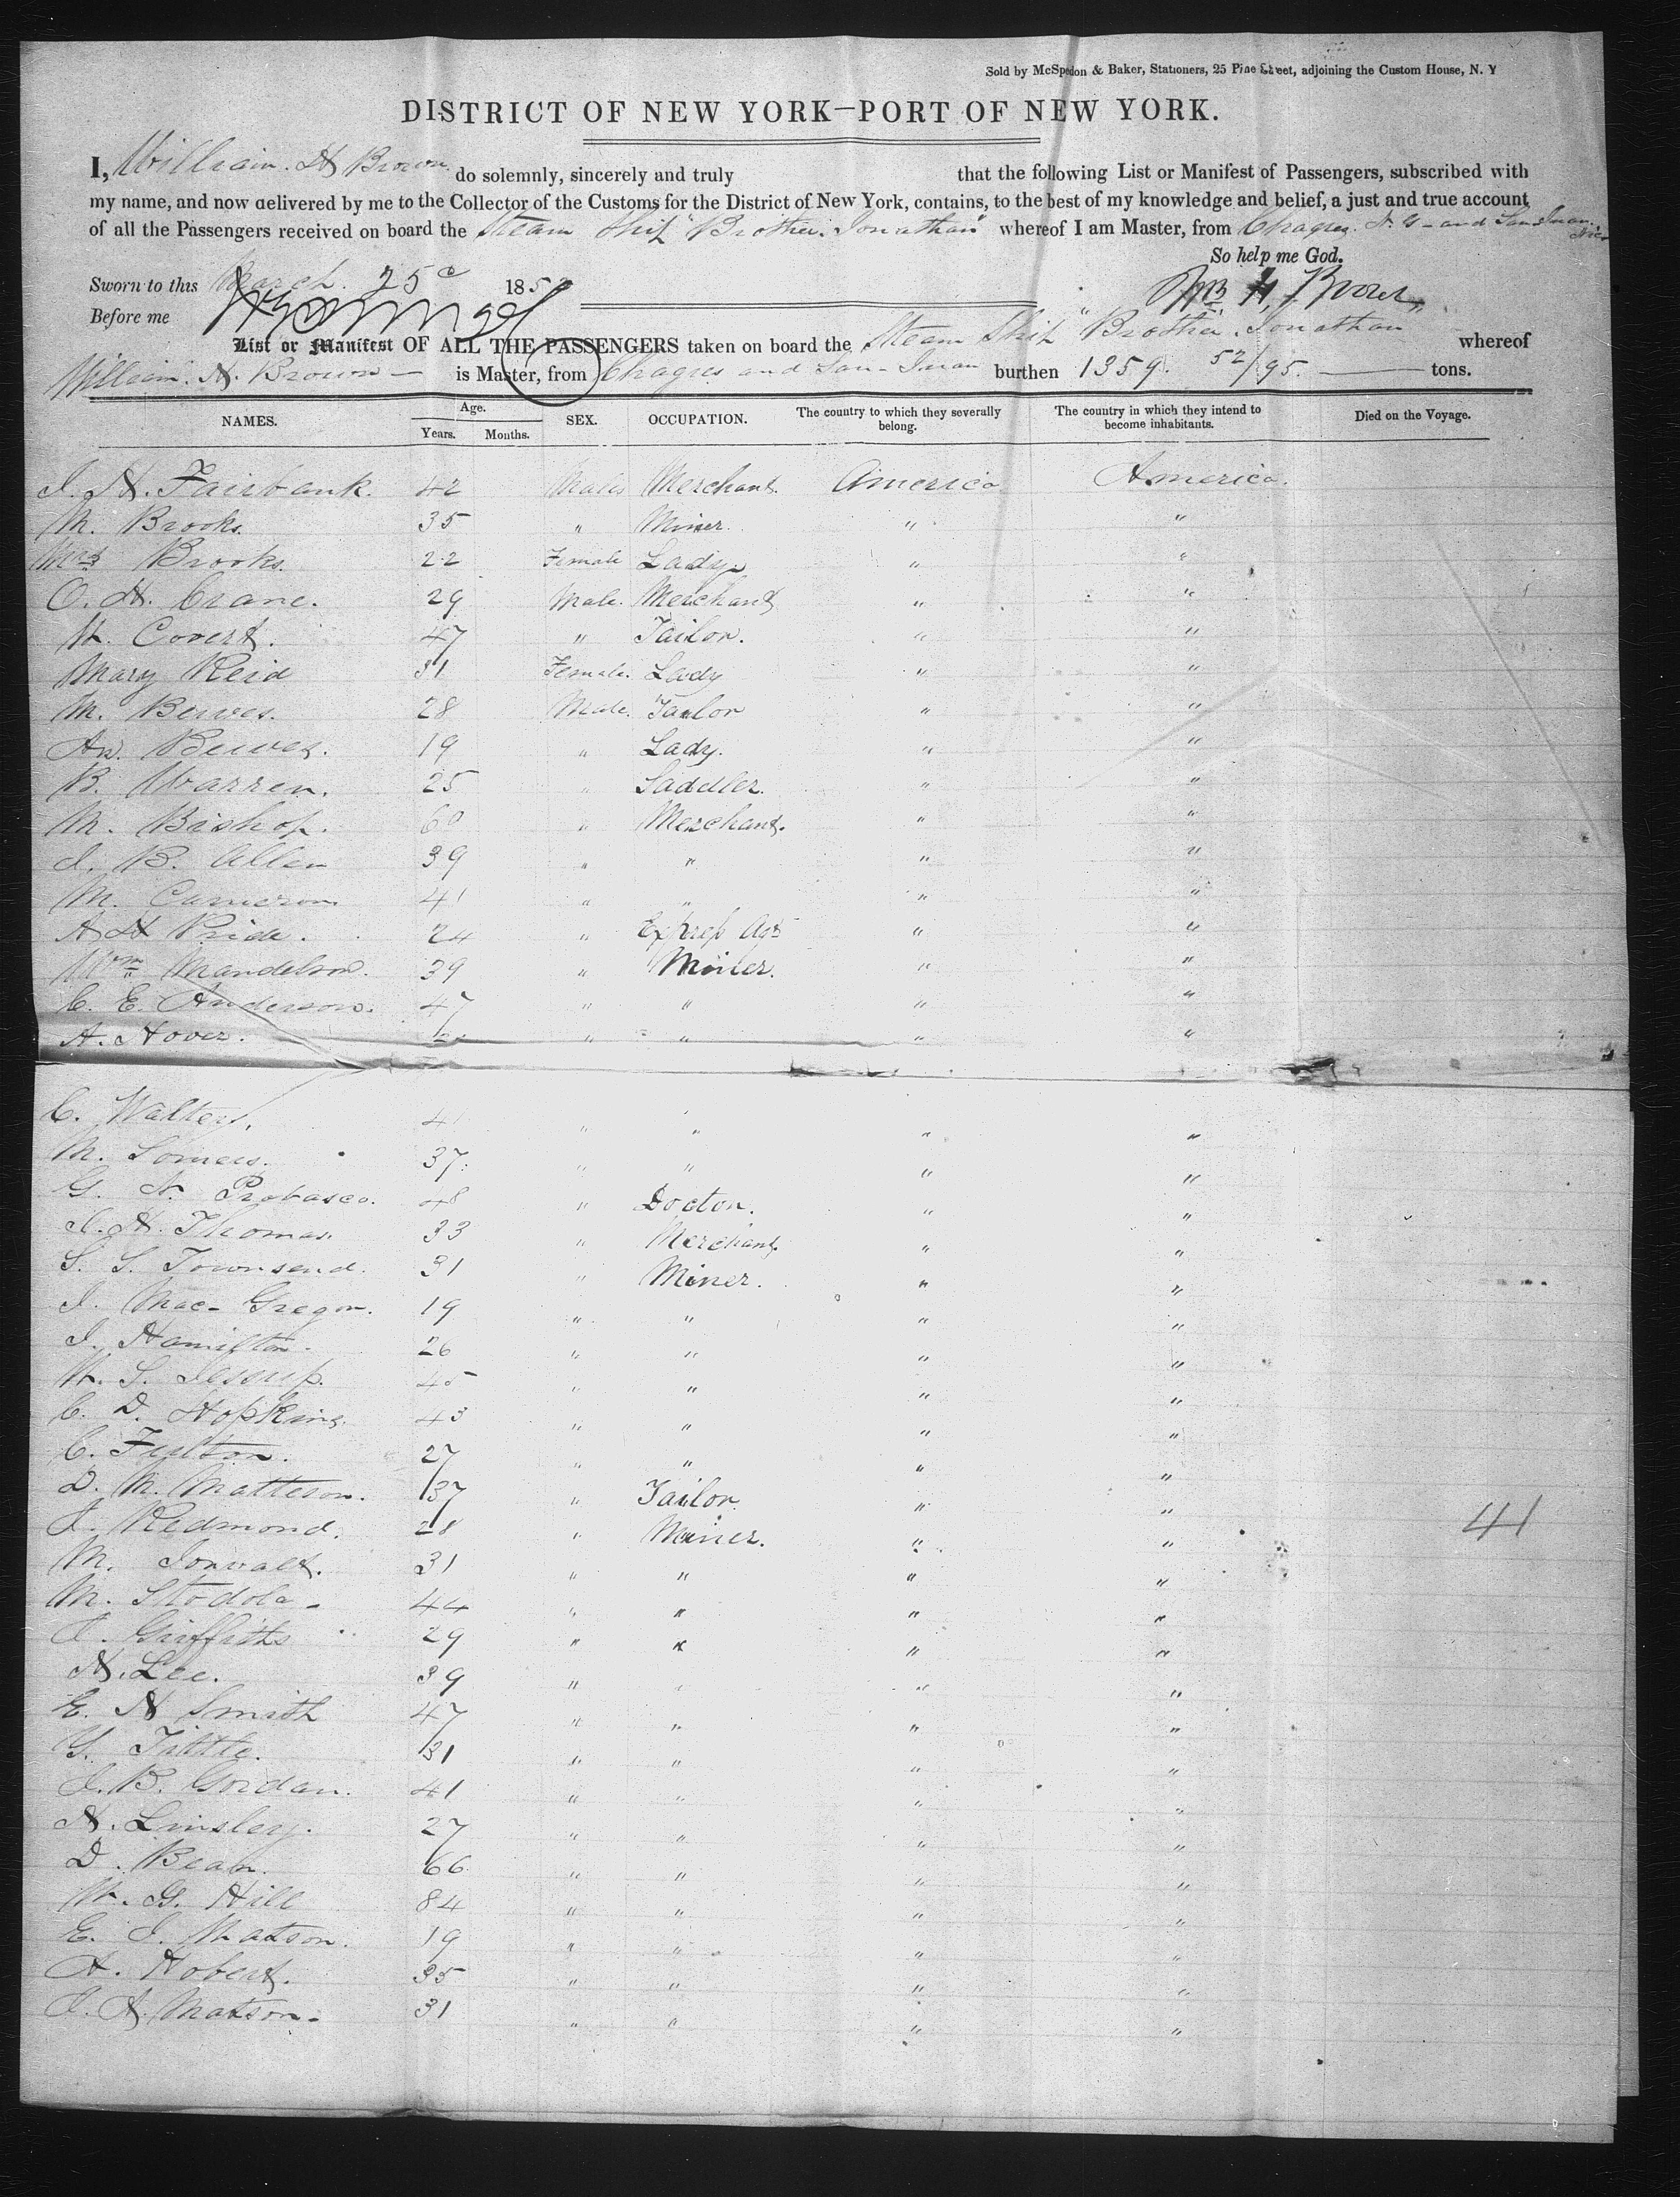 Sold by McSpedon & Baker, Stationers, 25 Pine Street, adjoining the Custom House, N. Y
DISTRICT OF NEW YORK—PORT OF NEW YORK.
I, William. H Brown do solemnly, sincerely and truly that the following List or Manifest of Passengers, subscribed with
my name, and now delivered by me to the Collector of the Customs for the District of New York, contains, to the best of my knowledge and belief, a just and true account
of all the Passengers received on board the Steam Ship "Brother. Jonathan" whereof I am Master, from Chagres. N. G - and San Juan. Nic
So help me God.
Sworn to this March. 25 185
Wm H, Brown
Before me
List or Manifest OF ALL THE PASSENGERS taken on board the Steam Ship "Brother. Jonathan" whereof
William. H. Brown — is Master, from Chagres and San - Juan burthen 1359. 52/95. — tons.
NAMES. Age. Years. Months. SEX. OCCUPATION. The country to which they severally belong. The country in which they intend to become inhabitants. Died on the Voyage.
J. H. Fairbank. 42 Males Merchant. America America.
M. Brooks. 35 " Miner. " "
Mrs Brooks. 22 Female Lady " "
O. H. Crane. 29 Male. Merchant " "
W. Covert. 47 " Tailor. " "
Mary Reid 31 Female. Lady " "
M. Beeves. 28 Male. Tailor " "
Beeves. 19 " Lady. " "
B. Warren. 25 " Saddler. " "
M. Bishop. 60 " Merchant. " "
J. B. Allen 39 " " " "
M. Cameron 41 " " " "
A H Pride. 24 " Express Agt " "
Wm Mandelson. 39 " Miner. " "
C. E. Anderson. 47 " " " "
A. Hover. " " " "
C. Walters. 41 " " " "
M. Somers. 37. " " " "
G. N. Probasco. 48 " Doctor. " "
J. H. Thomas. 33 " Merchant. " "
S. S. Townsend. 31 " Miner. " "
J. Mac- Gregor. 19 " " " "
J. Hamilton. 26 " " " "
W. S. Jessup. 45 " " " "
C. D. Hopkins. 43 " " " "
C. Fulton. 27 " " " "
D. M. Matteson. 37 " Tailor " "
J. Redmond. 28 " Miner. " " 41
M. 31 " " " "
M. Stodola - 44 " " " "
J. Griffiths 29 " " " "
H. Lee. 39 " " " "
E. H Smith 47 " " " "
Y. Tittle. 31 " " " "
J. B. Gordan. 41 " " " "
H. Linsley. 27 " " " "
D. Bean. 66. " " " "
W. G. Hill 84 " " " "
E. J. Matson. 19 " " " "
A. Hobert. 35 " " " "
J. A. Matson. 31 " " " "